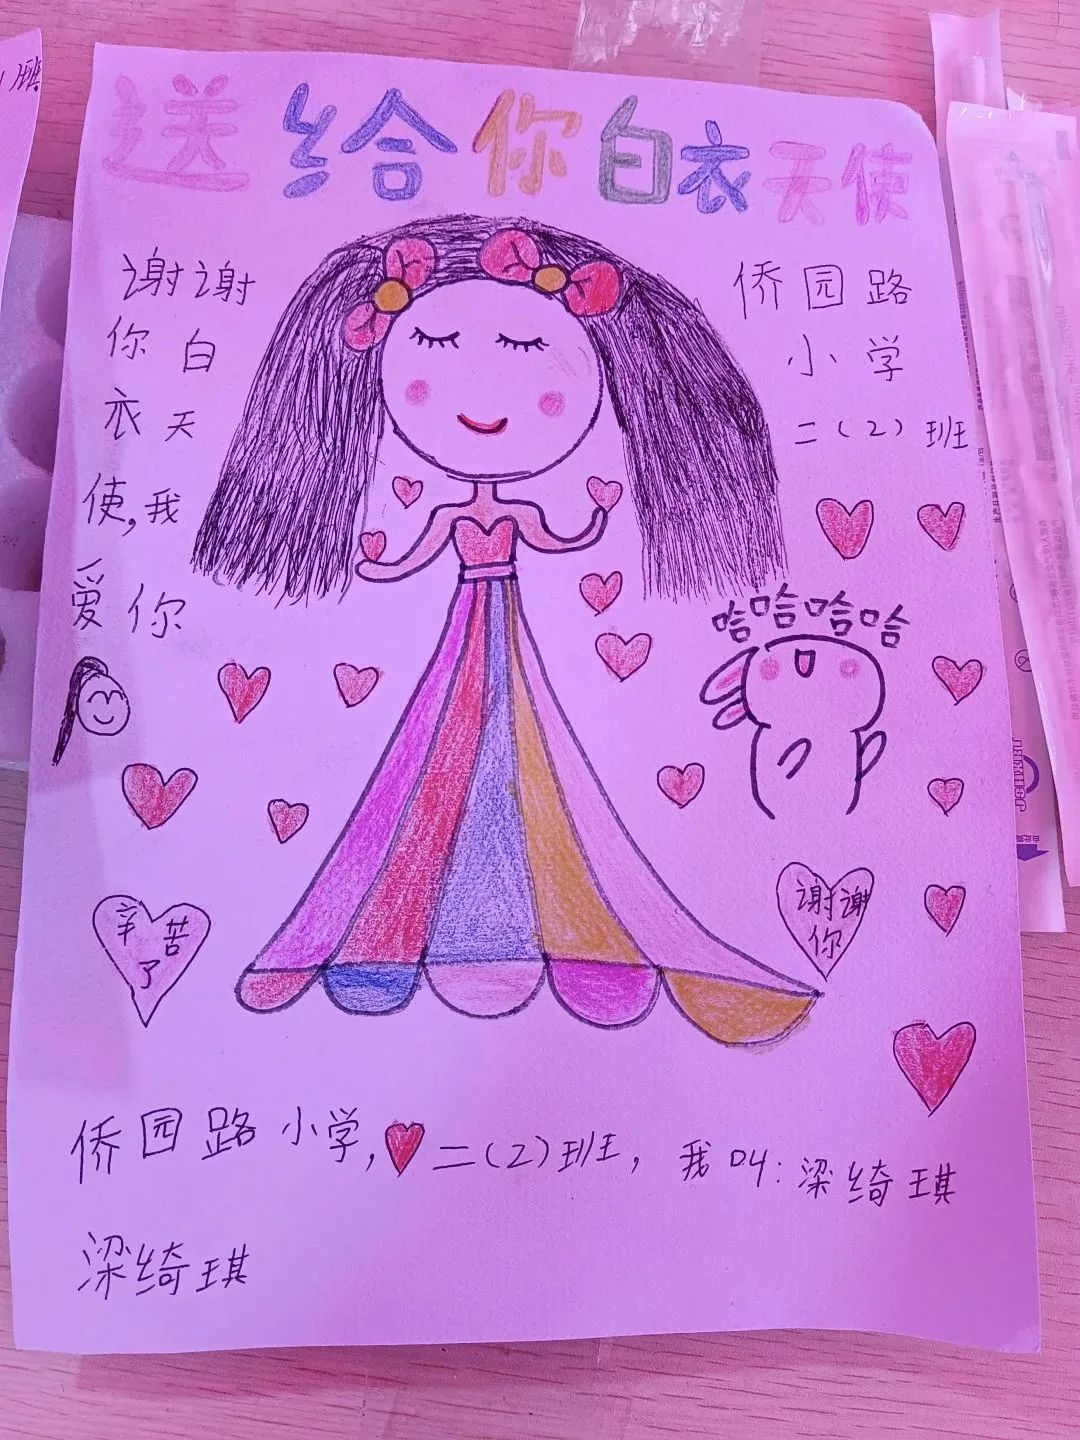 送给你白衣天使
谢谢
你白
衣天
使,我
爱你
侨园路
小学
二(2)班
哈哈哈哈
辛苦
了
谢谢
你
侨园路小学,二(2)班,我叫:梁绮琪
梁绮琪
班